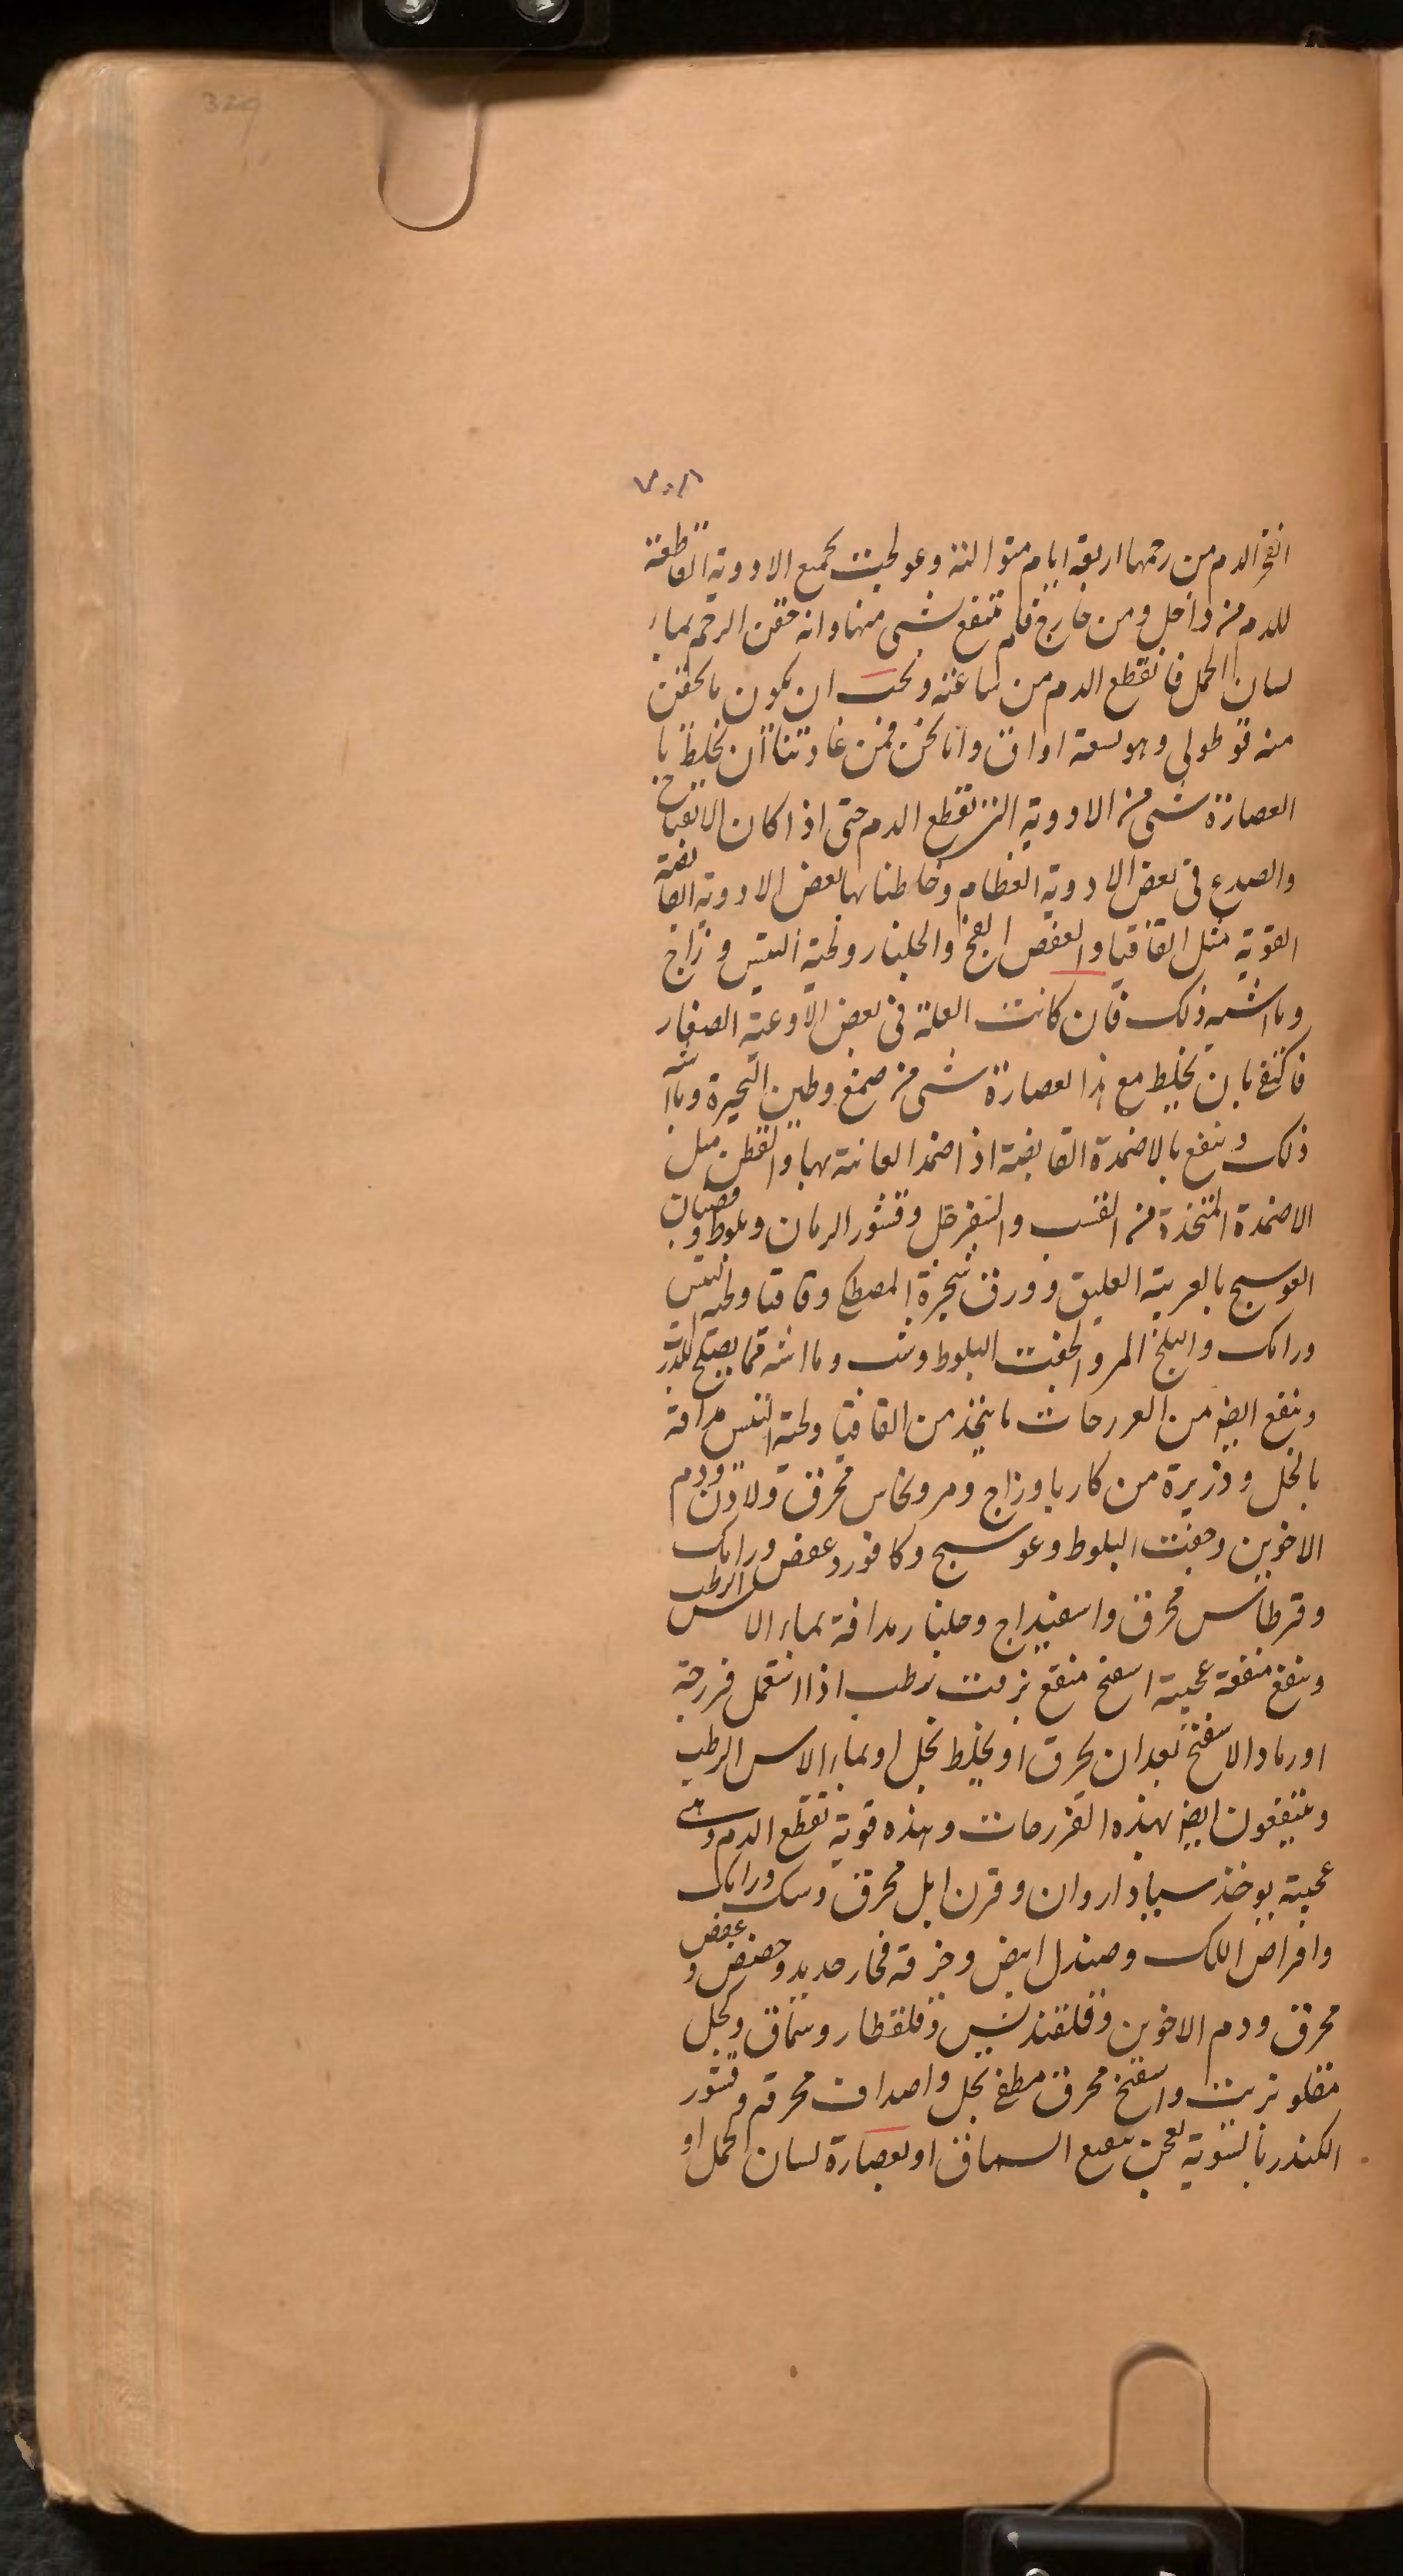 329
٧٠٨
انفجر الدم من رحمها اربعة ايام متوالية وعولجت بجميع الادوية القاطعة
للدم من داخل ومن خارج فلم تنتفع بشى منها وانه حقن الرحم بماء
لسان الحمل فانقطع الدم من ساعته ويجب ان يكون ما يحقن
منه قوطولى وهو سعة اواق وانا نحن فمن عادتنا ان نخلط با
العصارة شى من الادوية التى تقطع الدم حتى اذا كان الانفتاح
والصدع فى بعض الادوية العظام وخالطنا بها بعض الادوية القابضة
القوية مثل القاقيا والعفص الفج والجلنار ولحية التيس وزاج
وما اشبه ذلك فان كانت العلة فى بعض الاوعية الصغار
فاكتف بان تخلط مع هذا العصارة شى من صمغ وطين البحيرة وما اشبه
ذلك وينفع بالاضمدة القابضة اذا ضمد العانة بها والقطن مثل
الاضمدة المتخذة من القسب والسفرجل وقشور الرمان وبلوط وقضبان
العوسج بالعربية العليق وورق شجرة المصطكى وقاقيا ولحية التيس
ورامك والبلح المر والجفت البلوط وشب وما اشبه مما يصلح لذلك
وينفع ايضا من الفرزجات ما يتخذ من القاقيا ولحية التيس مدافة
بالخل وذريرة من كاربا وزاج ومر ونحاس محرق ولادن ودم
الاخوين وجفت البلوط وعوسج وكافور وعفص ورامك
وقرطاس محرق واسفيداج وجلنار مدافة بماء الاس الرطب
وينفع منفعة عجيبة اسفنج منقع بزفت رطب اذا استعمل فرزجة
او رماد الاسفنج بعد ان يحرق او يخلط بخل او بماء الاس الرطب
وينتفعون ايضا بهذه الفرزجات وهذه قوية تقطع الدم وهى
عجيبة يوخذ سيادار وان وقرن ايل محرق وسك ورامك
واقراص اللك وصندل ابيض وخرقة فخار جديد وحضض وعفص
محرق ودم الاخوين وقلقنديس وقلقطار وسماق وكحل
مقلو بزيت واسفنج محرق مطفى بخل واصداف محرقة وقشور
الكندر بالسوية يعجن بنقيع السماق او بعصارة لسان الحمل او